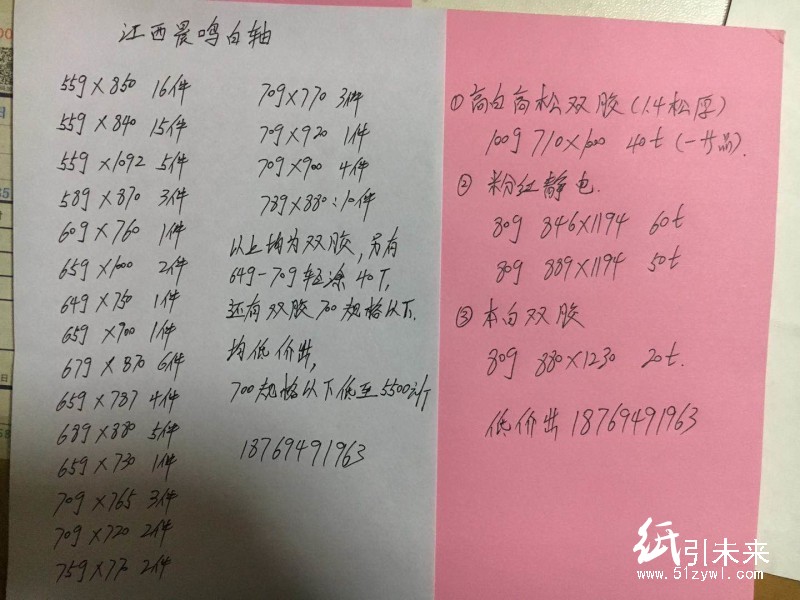 江西晨鸣白轴
55g×850 16件
55g×840 15件
55g×1092 5件
58g×870 3件
60g×760 1件
65g×1000 2件
64g×750 1件
65g×900 1件
67g×870 6件
65g×787 4件
68g×880 5件
65g×730 1件
70g×765 3件
70g×720 2件
75g×770 2件
70g×770 3件
70g×920 1件
70g×900 4件
78g×880:10件
以上均为双胶,另有
64g-70g轻涂40T,
还有双胶700规格以下.
均低价出,
700规格以下低至5500元/T
18769491963
①高白高松双胶(1.4松厚)
100g 710×1000 40t(一片品).
②粉红静电.
80g 846×1194 60t
80g 889×1194 50t
③本白双胶
80g 880×1230 20t.
低价出18769491963
纸引未来
www.51zywl.com